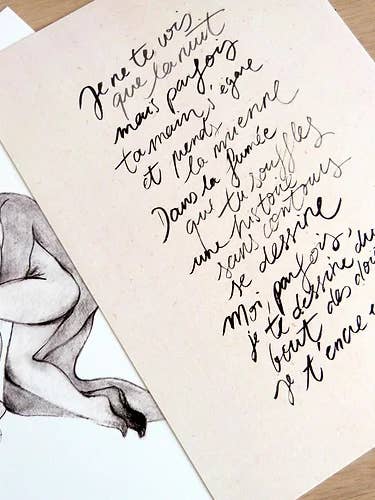 Je ne te vois
que la nuit
mais parfois
ta main s'égare
et prends
la mienne
Dans la fumée
que tu souffles
une histoire
sans contours
se dessine
Moi, parfois,
je te dessine du
bout des doi
Je t'encre